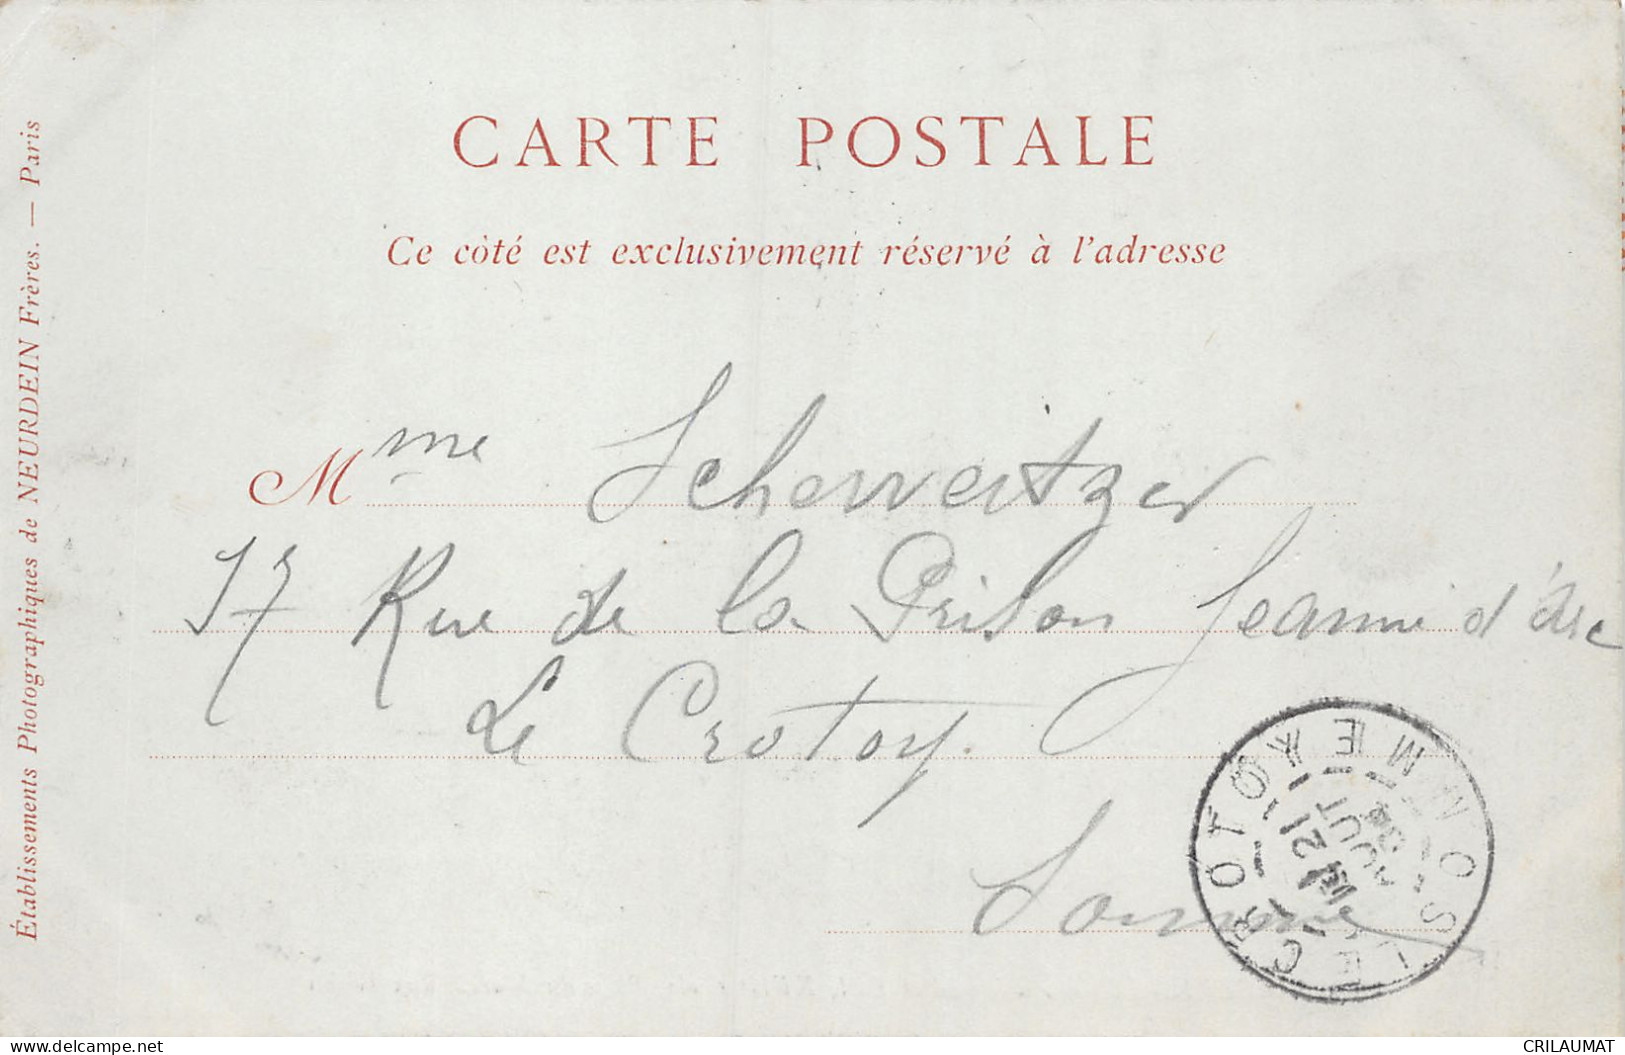 CARTE POSTALE
Ce côté est exclusivement réservé à l'adresse
Mme Scherveitzer
17 Rue de la Prison Jeanne d'Arc
Le Crotoy.
Somme
LE CROTOY SOMME
21
AOUT
Établissements Photographiques de NEURDEIN Frères. — Paris
www.delcampe.net
CRILAUMAT